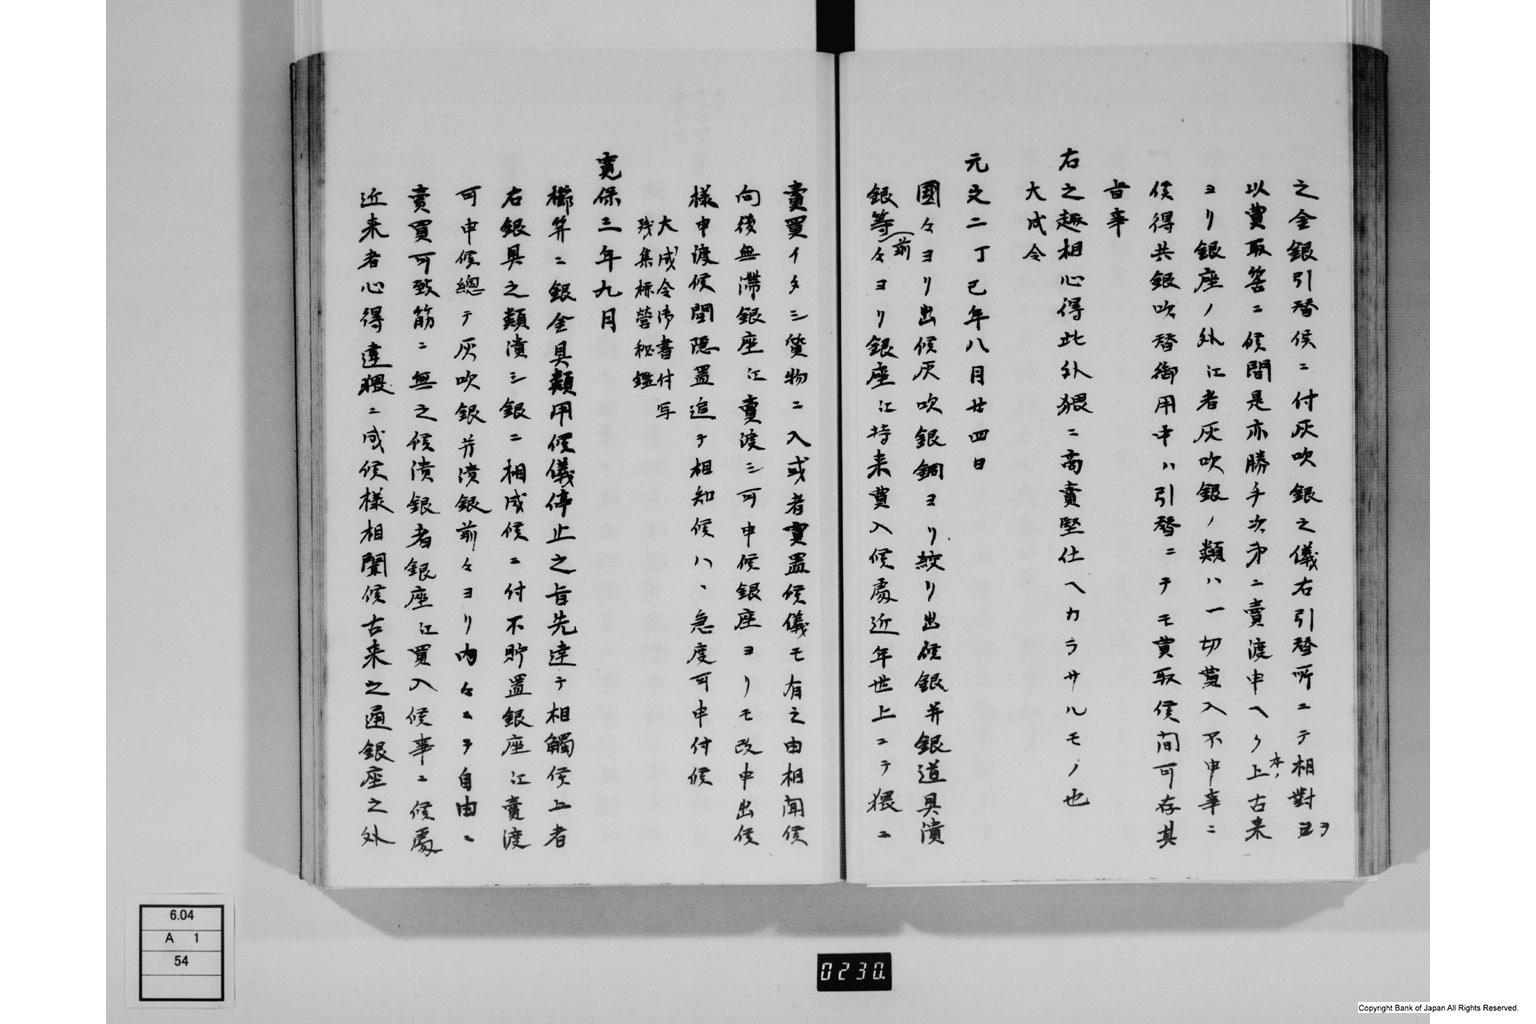 之金銀引替候ニ付灰吹銀之儀右引替所ニテ相對ヲ
以賣取筈ニ候間是亦勝手次第ニ賣渡申ヘク上古来
ヨリ銀座ノ外江者灰吹銀ノ類ハ一切賣入不申事ニ
候得共銀吹替御用中ハ引替ニテモ賣取候間可存其
旨事
右之趣相心得此外猥ニ商賣堅仕ヘカラサルモノ也
大成令
元文二丁巳年八月廿四日
國々ヨリ出候灰吹銀銅ヨリ絞リ出候銀并銀道具潰
銀等前々ヨリ銀座江持来賣入候處近年世上ニテ猥ニ
賣買イタシ質物ニ入或者賣置候儀モ有之由相聞候
向後無滞銀座江賣渡シ可申候銀座ヨリモ改申出候
様申渡候間隠置追テ相知候ハヽ急度可申付候
大成令御書付写
残集標營秘鑑
寛保三年九月
櫛笄ニ銀金具類用候儀停止之旨先達テ相觸候上者
右銀具之類潰シ銀ニ相成候ニ付不貯置銀座江賣渡
可申候總テ灰吹銀并潰銀前々ヨリ内々ニテ自由ニ
賣買可致筋ニ無之候潰銀者銀座江買入候事ニ候處
近来者心得違猥ニ成候様相聞候古来之通銀座之外
6.04
A 1
54
0230
Copyright Bank of Japan All Rights Reserved.